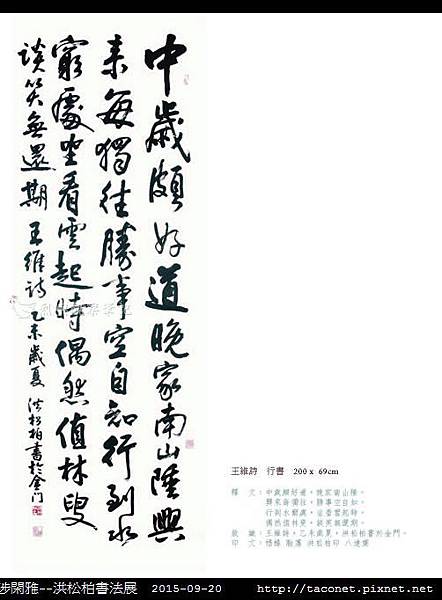 中歲頗好道晚家南山陲興
来每獨往勝事空自知行到水
窮處坐看雲起時偶然值林叟
談笑無還期 王維詩 乙未歲夏 洪松柏書於金门
王維詩 行書 200 x 69cm
釋 文：中歲頗好道，晚家南山陲。
興來每獨往，勝事空自知。
行到水窮處，坐看雲起時。
偶然值林叟，談笑無還期。
款 識：王維詩，乙未歲夏，洪松柏書於金門。
涉閑雅--洪松柏書法展 2015-09-20 http://taconet.pixnet.net